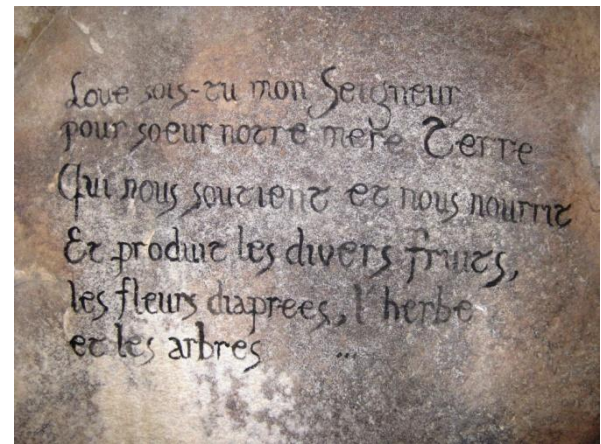 Loue sois-tu mon Seigneur
pour soeur notre mere Terre
Qui nous soutient et nous nourrit
Et produit les divers fruits,
les fleurs diaprees, l'herbe
et les arbres ...